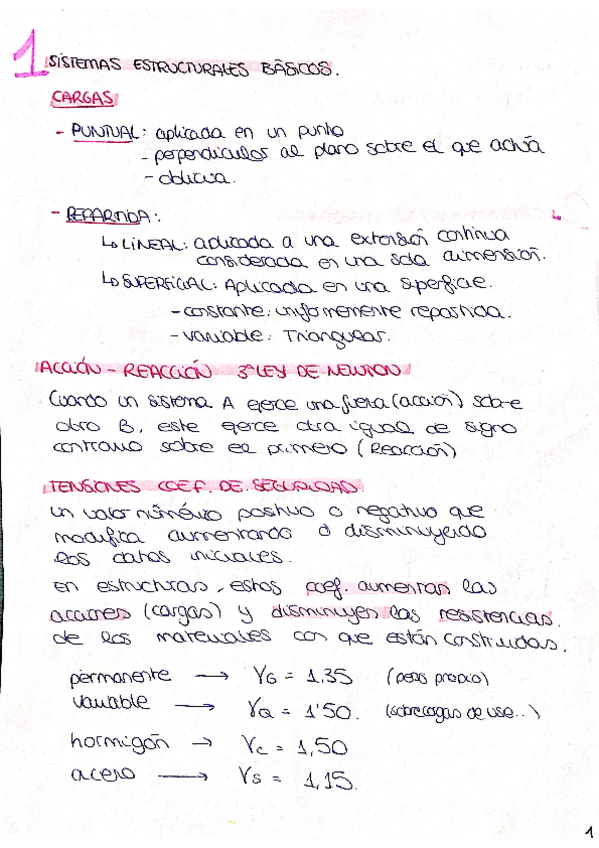 1 SISTEMAS ESTRUCTURALES BÁSICOS.
CARGAS
- PUNTUAL: aplicada en un punto
- perpendicular al plano sobre el que actúa
- oblicua.
- REPARTIDA:
↳ LINEAL: aplicada a una extensión continua
considerada en una sola dimensión.
↳ SUPERFICIAL: Aplicada en una superficie.
- constante: uniformemente repartida.
- variable: Triangular.
ACCIÓN - REACCIÓN 3ª LEY DE NEWTON
Cuando un sistema A ejerce una fuerza (acción) sobre
otro B, este ejerce otra igual de signo
contrario sobre el primero (Reacción)
TENSIONES COEF. DE SEGURIDAD
un valor númérico positivo o negativo que
modifica aumentando o disminuyendo
los datos iniciales.
en estructuras, estos coef. aumentan las
acciones (cargas) y disminuyen las resistencias
de los materiales con que están construidas.
permanente → γG = 1,35 (peso propio)
variable → γQ = 1'50. (sobrecargas de uso..)
hormigón → γc = 1,50
acero → γs = 1,15.
1